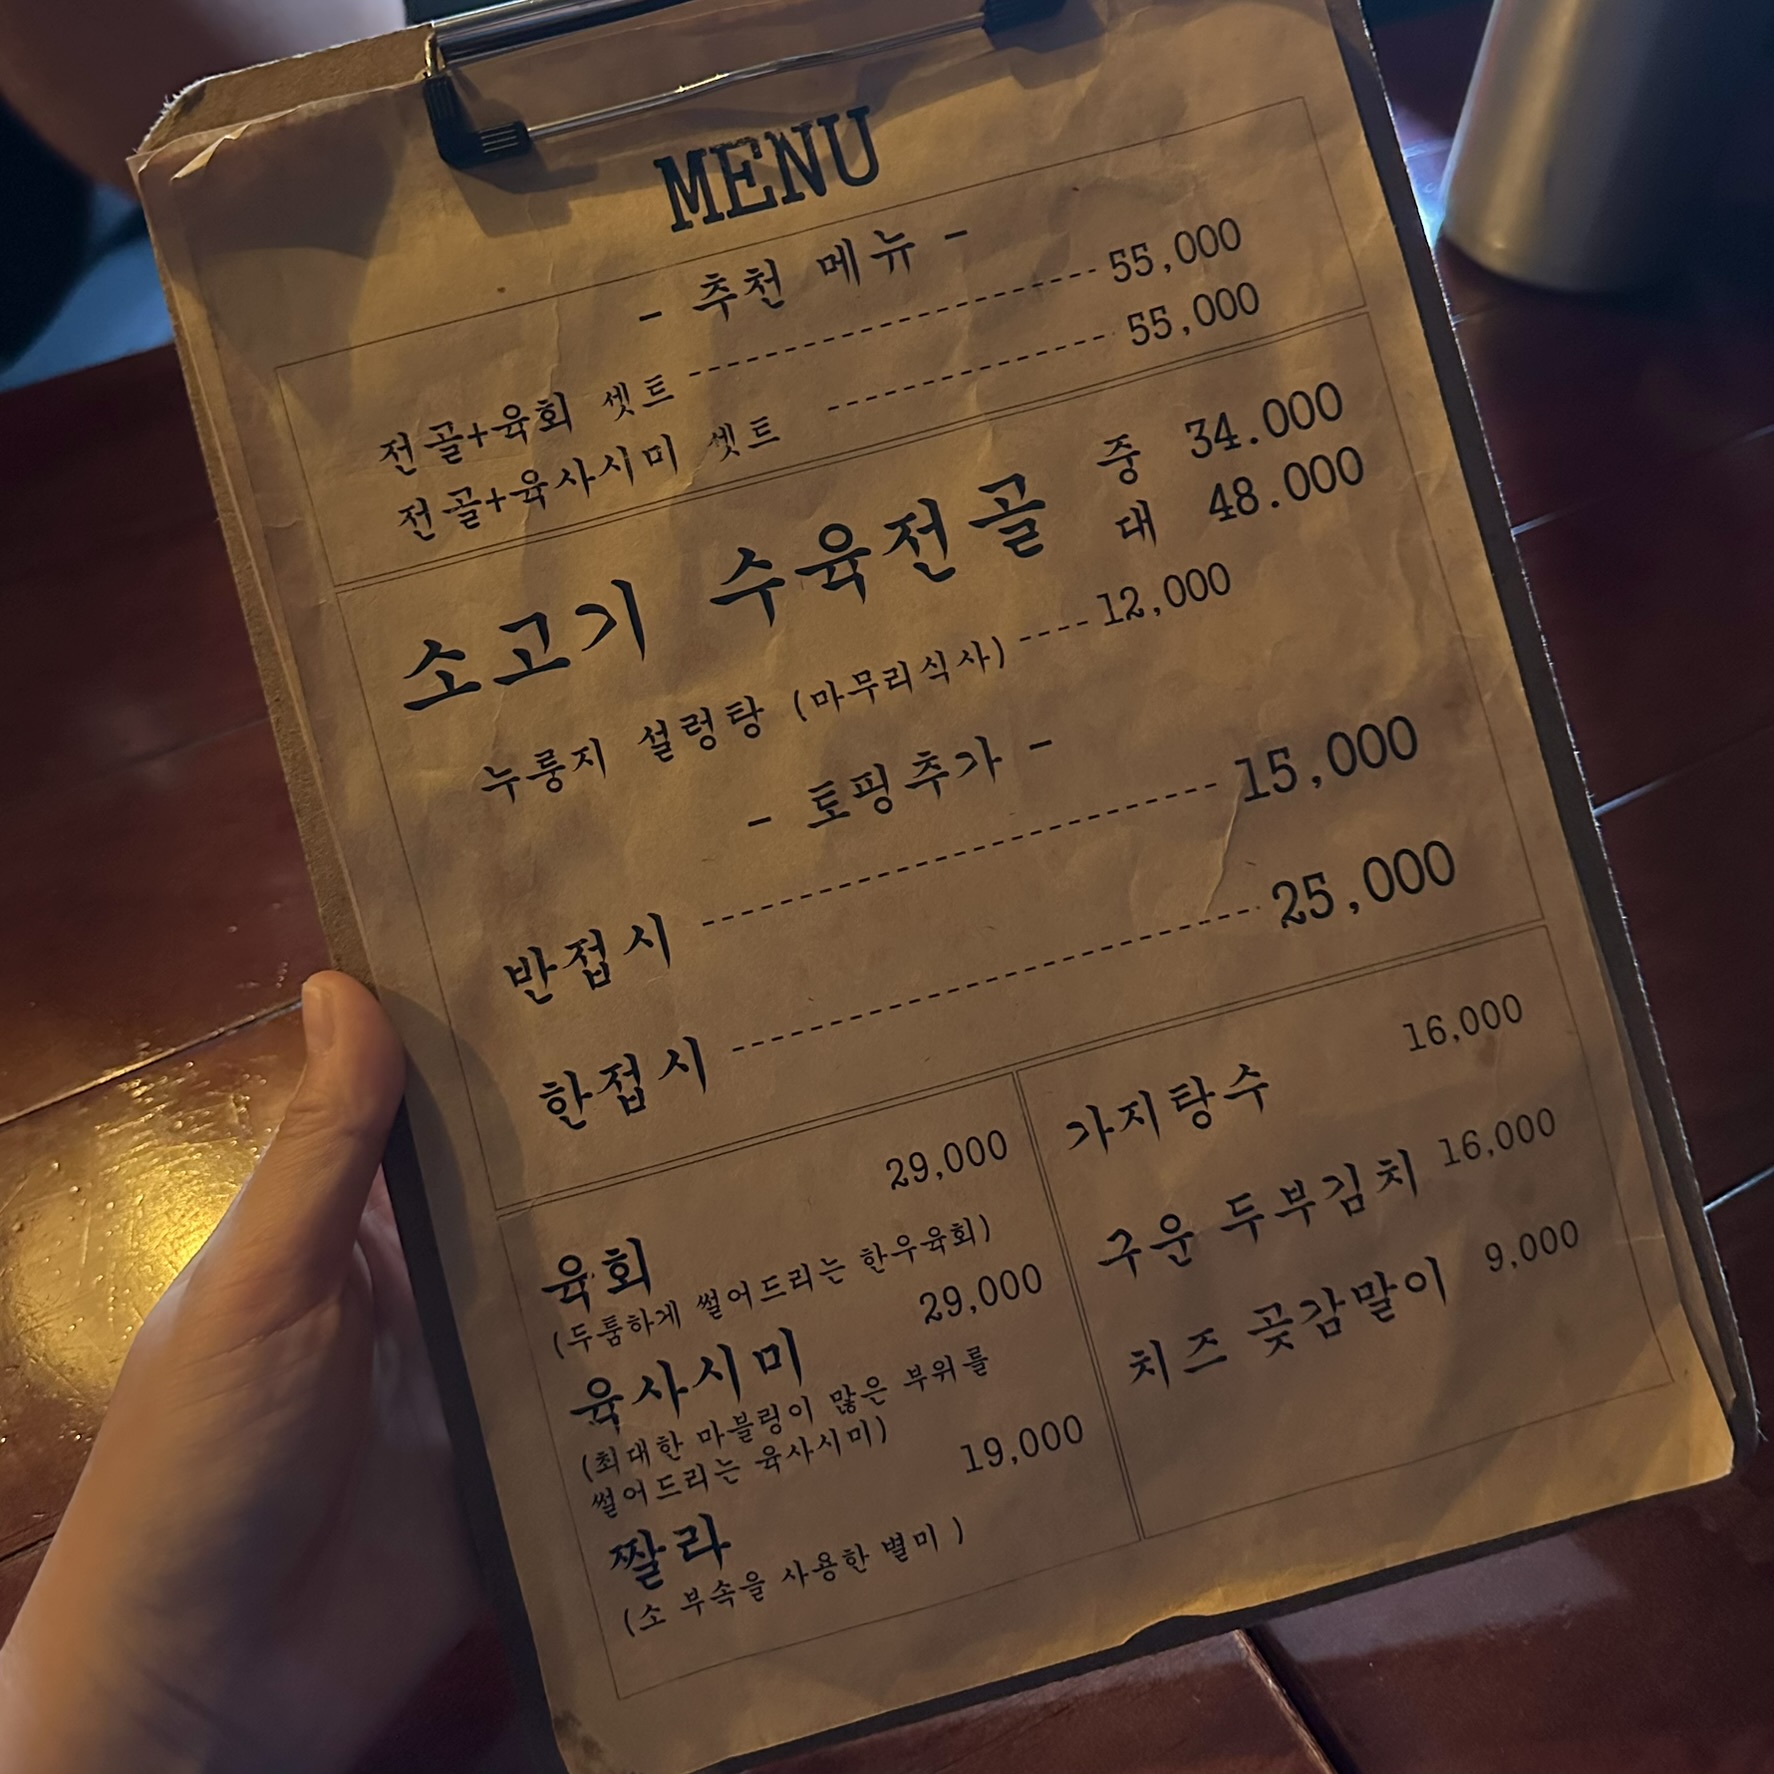 MENU
- 추천 메뉴 -
전골+육회 셋트 55,000
전골+육사시미 셋트 55,000
소고기 수육전골 중 34.000
대 48.000
누룽지 설렁탕 (마무리식사) 12,000
- 토핑추가 -
반접시 15,000
한접시 25,000
육회 29,000
(두툼하게 썰어드리는 한우육회)
육사시미 29,000
(최대한 마블링이 많은 부위를
썰어드리는 육사시미)
짤라 19,000
(소 부속을 사용한 별미 )
가지탕수 16,000
구운 두부김치 16,000
치즈 곶감말이 9,000